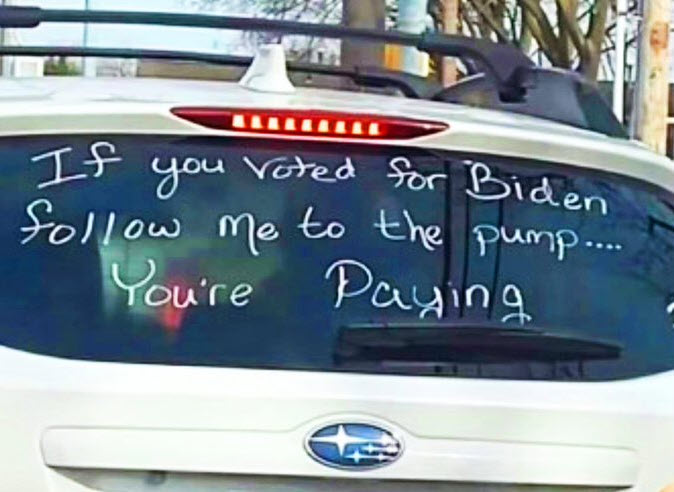 If you Voted for Biden
follow me to the pump....
You're Paying